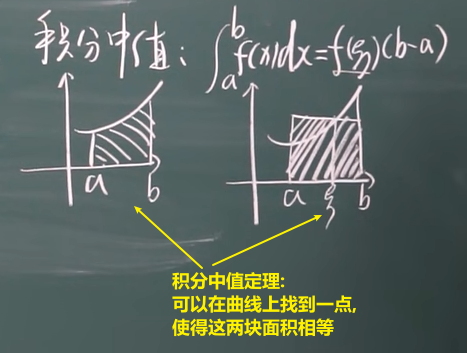 积分中值: ∫_a^b f(x)dx=f(ξ)(b-a)
a b a ξ b
积分中值定理:
可以在曲线上找到一点,
使得这两块面积相等